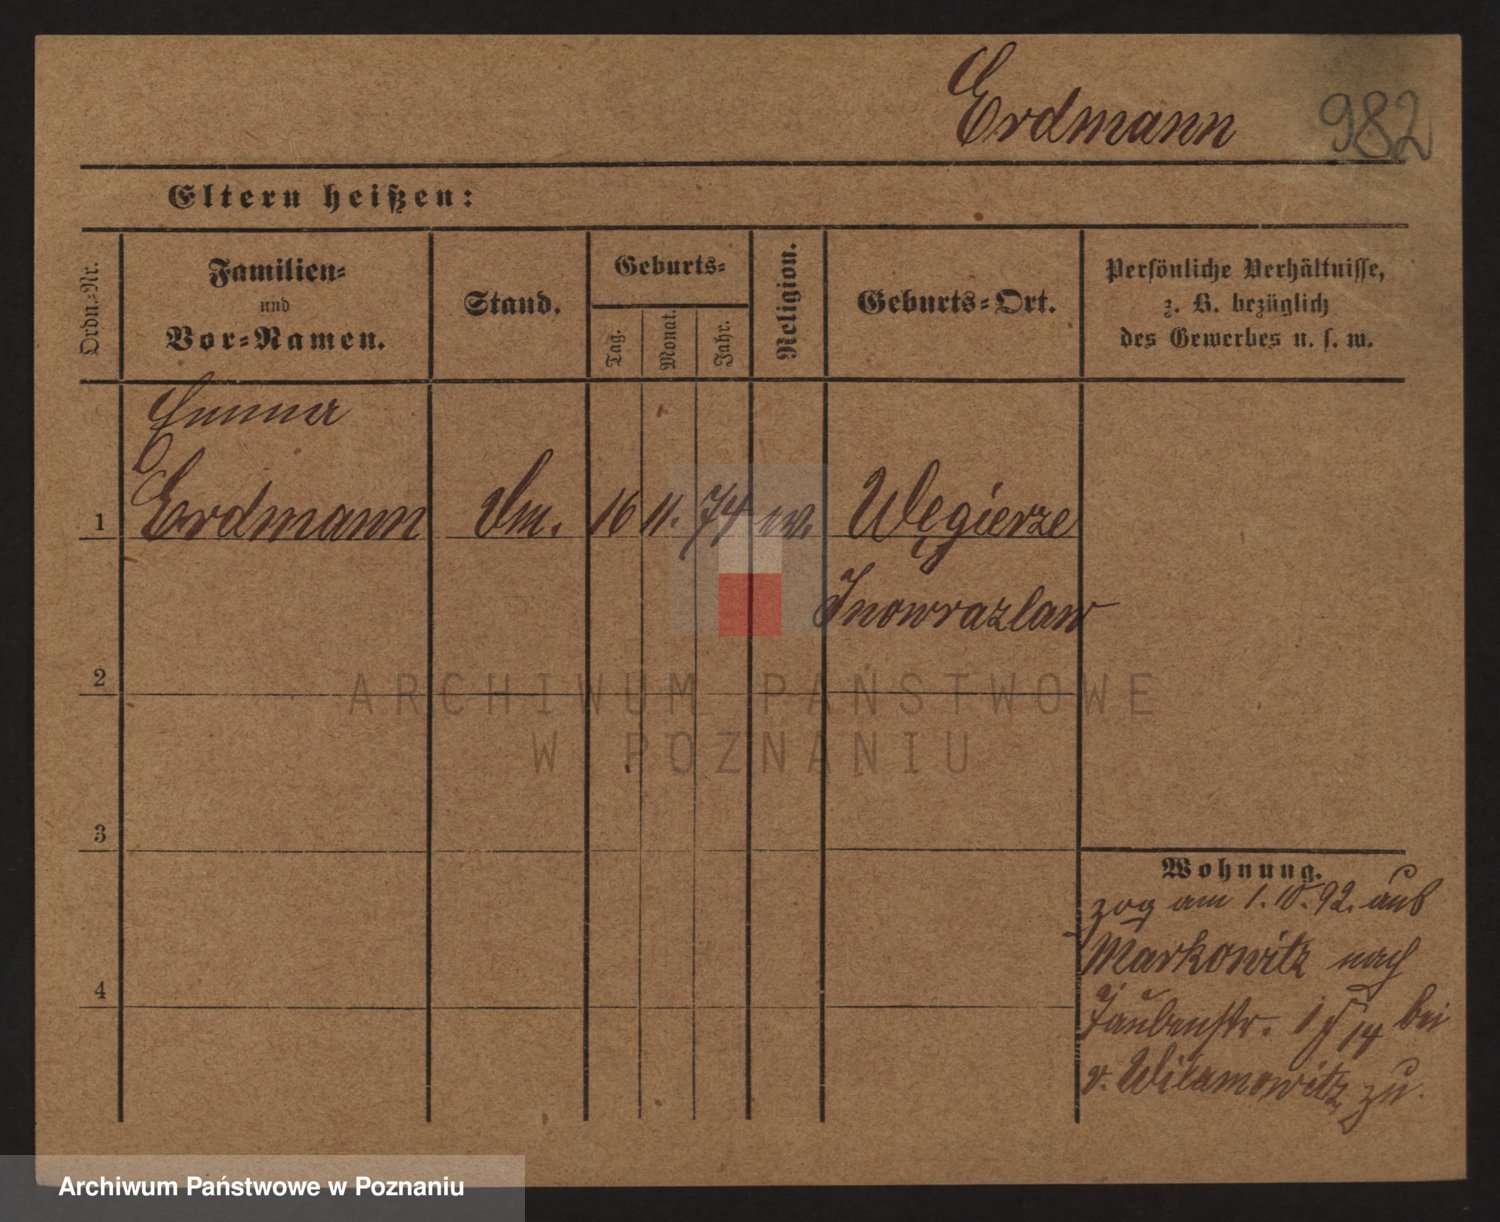 Erdmann 982
Eltern heißen:
Ordn.-Nr.
Familien-
und
Vor-Namen.
Stand.
Geburts-
Tag.
Monat.
Jahr.
Religion.
Geburts-Ort.
Persönliche Verhältnisse,
z. B. bezüglich
des Gewerbes u. s. w.
Emma
1 Erdmann 16 11. 74 ev. Węgierze
Inowrazlaw
2
ARCHIWUM PAŃSTWOWE
W POZNANIU
3
Wohnung.
zog am 1. 10. 92. aus
Markowitz nach
Taubenstr. 14 bei
v. Wilamowitz zu.
4
Archiwum Państwowe w Poznaniu